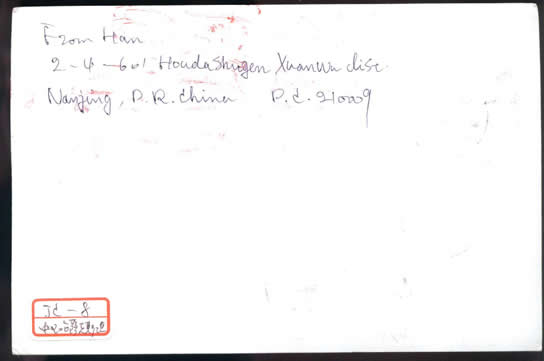 From Han
2-4-601 Houdashugen Xuanwu disc.
Nanjing, P.R. China P.C. 210009
JC-8